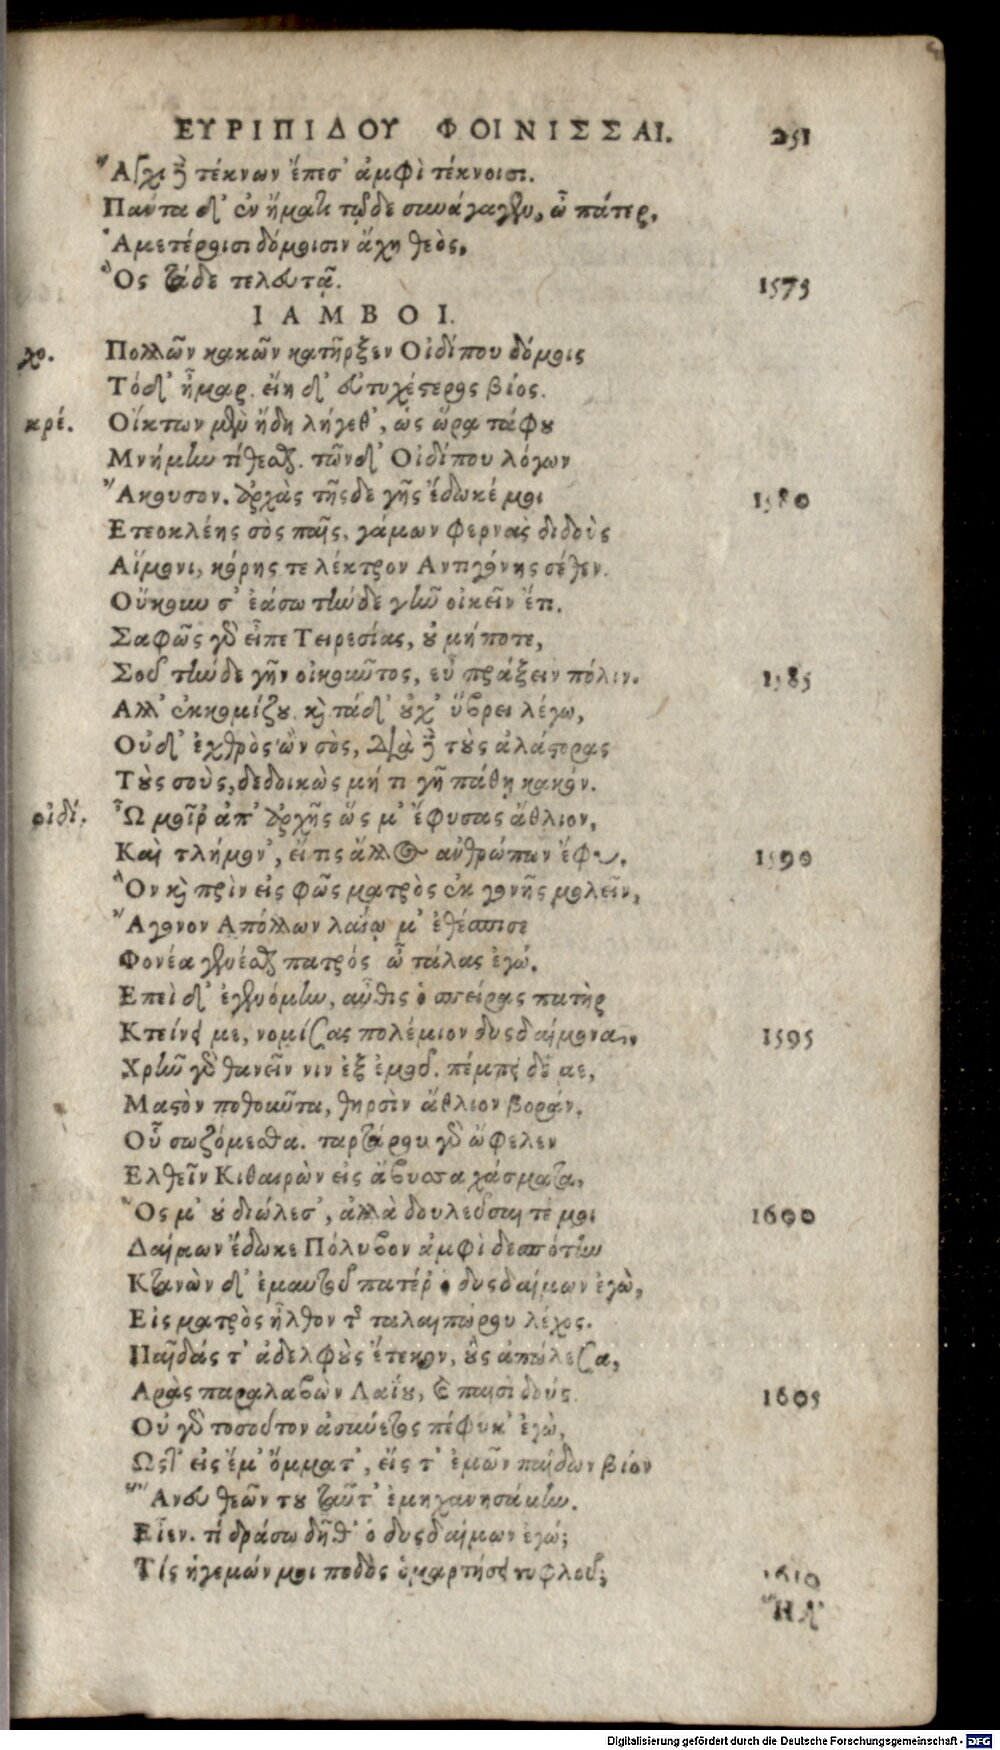 ΕΥΡΙΠΙΔΟΥ ΦΟΙΝΙΣΣΑΙ. 251
Ἄγχι ἢ τέκνων ἔπεσ' ἀμφὶ τέκνοισι.
Πάντα δ' ἐν ἤματι τῷδε συνάγαγεν, ὦ πάτερ,
Ἁμετέροισι δόμοισιν ἄχη θεὸς,
Ὃς τάδε τελευτᾷ. 1575
ΙΑΜΒΟΙ.
χο. Πολλῶν κακῶν κατῆρξεν Οἰδίπου δόμοις
Τόδ' ἦμαρ. εἴη δ' εὐτυχέστερος βίος.
κρέ. Οἴκτων μὲν ἤδη λήγεθ', ὡς ὥρα τάφου
Μνήμην τίθεσθαι. τῶνδ' Οἰδίπου λόγων
Ἄκουσον. ἀρχὰς τῆςδε γῆς ἔδωκέ μοι 1580
Ετεοκλέης σὸς παῖς, γάμων φερνὰς διδοὺς
Αἵμονι, κόρης τε λέκτρον Αντιγόνης σέθεν.
Οὔκουν σ' ἐάσω τήνδε γῆν οἰκεῖν ἔτι.
Σαφῶς γὰρ εἶπε Τειρεσίας, οὐ μήποτε,
Σοῦ τήνδε γῆν οἰκοῦντος, εὖ πράξειν πόλιν. 1585
Αλλ' ἐκκομίζου. καὶ τάδ' οὐχ' ὕβρει λέγω,
Οὐδ' ἐχθρὸς ὢν σὸς, διὰ ἢ τοὺς ἀλάστορας
Τοὺς σοὺς, δεδοικὼς μή τι γῆ πάθῃ κακόν.
οἰδί. Ὦ μοῖρ' ἀπ' ἀρχῆς ὥς μ' ἔφυσας ἄθλιον,
Καὶ τλήμον', εἴ τις ἄλλος ἀνθρώπων ἔφυ. 1590
Ὃν καὶ πρὶν εἰς φῶς ματρὸς ἐκ γονῆς μολεῖν,
Ἄγονον Απόλλων λαΐῳ μ' ἐθέσπισε
Φονέα γενέσθαι πατρός ὦ τάλας ἐγώ.
Επεὶ δ' ἐγενόμην, αὖθις ὁ σπείρας πατὴρ
Κτείνει με, νομίσας πολέμιον δυςδαίμονα. 1595
Χρῆν γὰρ θανεῖν νιν ἐξ ἐμοῦ. πέμπει δέ με,
Μαστὸν ποθοῦντα, θηρσὶν ἄθλιον βοράν.
Οὗ σωζόμεσθα. ταρτάρου γὰρ ὤφελεν
Ελθεῖν Κιθαιρὼν εἰς ἄβυσσα χάσματα,
Ὅς μ' οὐ διώλεσ', ἀλλὰ δουλεῦσαι τέ μοι 1600
Δαίμων ἔδωκε Πόλυβον ἀμφὶ δεσπότην
Κτανὼν δ' ἐμαυτοῦ πατέρ' ὁ δυςδαίμων ἐγὼ,
Εἰς ματρὸς ἦλθον τῆς ταλαιπώρου λέχος.
Παῖδάς τ' ἀδελφοὺς ἔτεκον, οὓς ἀπώλεσα,
Αρὰς παραλαβὼν Λαΐου, καὶ παισὶ δούς. 1605
Οὐ γὰρ τοσοῦτον ἀσύνετος πέφυκ' ἐγὼ,
Ωςτ' εἰς ἔμ' ὄμματ', εἴς τ' ἐμῶν παίδων βίον
Ἄνευ θεῶν του ταῦτ' ἐμηχανησάμην.
Εἶεν. τί δράσω δῆθ' ὁ δυςδαίμων ἐγώ;
Τίς ἡγεμών μοι ποδὸς ὁμαρτήσει τυφλοῦ; 1610
Ἡ δ'
Digitalisierung gefördert durch die Deutsche Forschungsgemeinschaft - DFG